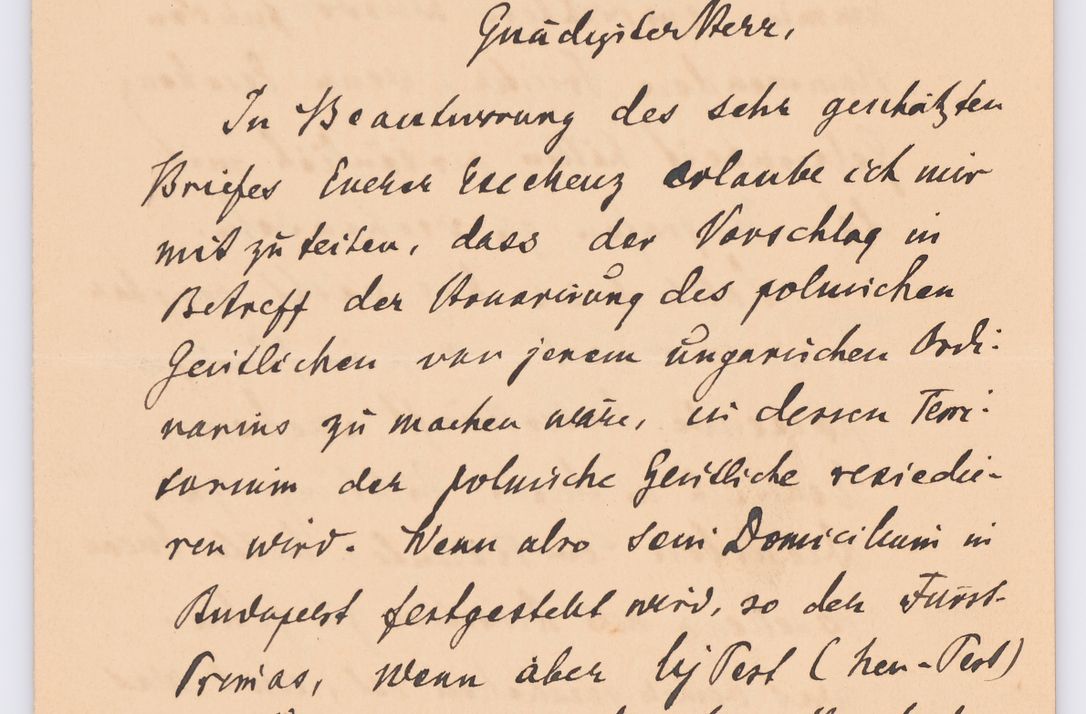 Gnädigster Herr,
In Beantwortung des sehr geschätzten
Briefes Euerer Excellenz erlaube ich mir
mit zu teilen, dass der Vorschlag in
Betreff der des polnischen
Geistlichen von jenem ungarischen Ordi-
narius zu machen wäre, in dessen Terri-
torium der polnische Geistliche residie-
ren wird. Wenn also sein Domicilium in
Budapest festgestellt wird, so der Fürst-
Primas, wenn aber Uj Pest (Neu-Pest)